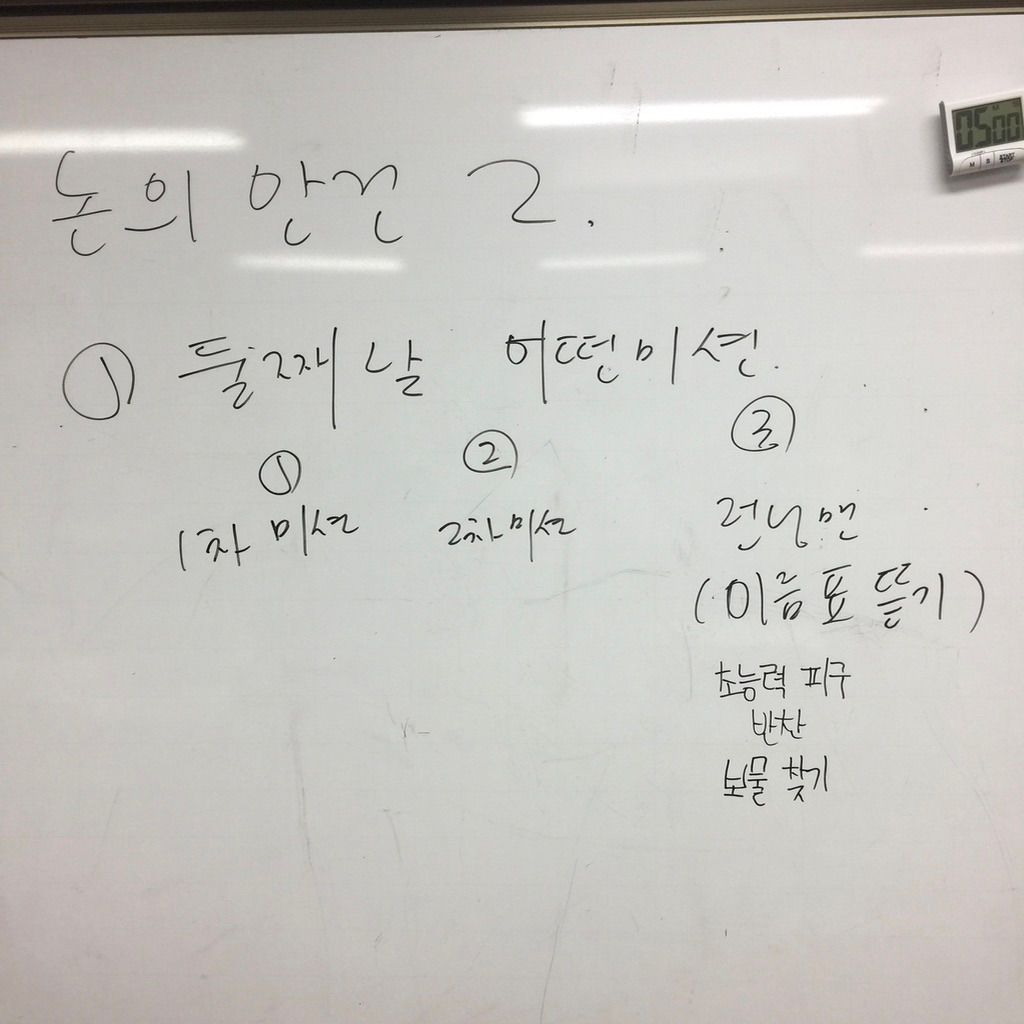 논의 안건 2.
05 00
M S
① 둘째 날 어떤미션.
① ② ③
1차 미션 2차 미션 런닝맨
(이름표 뜯기)
초능력 피구
반찬
보물 찾기